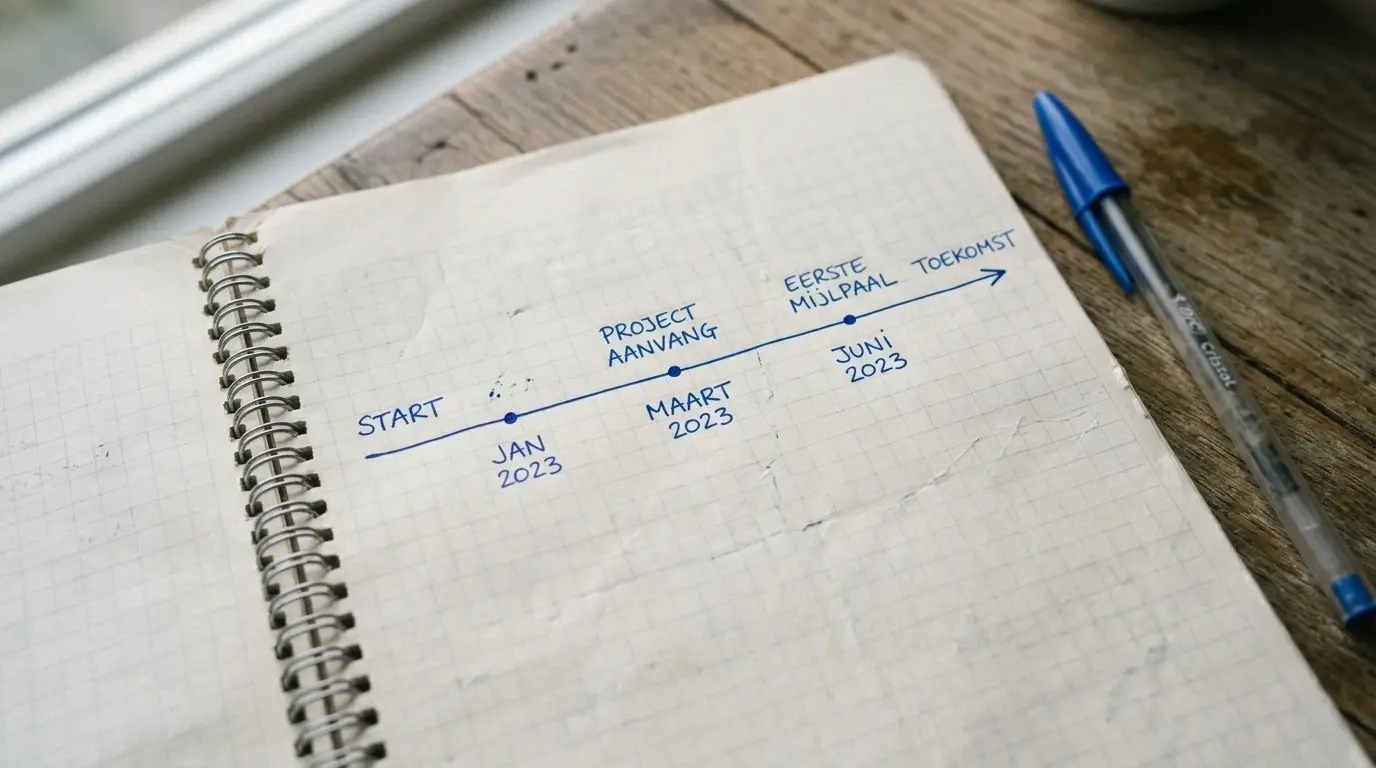 START
JAN
2023
PROJECT
AANVANG
MAART
2023
EERSTE
MIJLPAAL
JUNI
2023
TOEKOMST